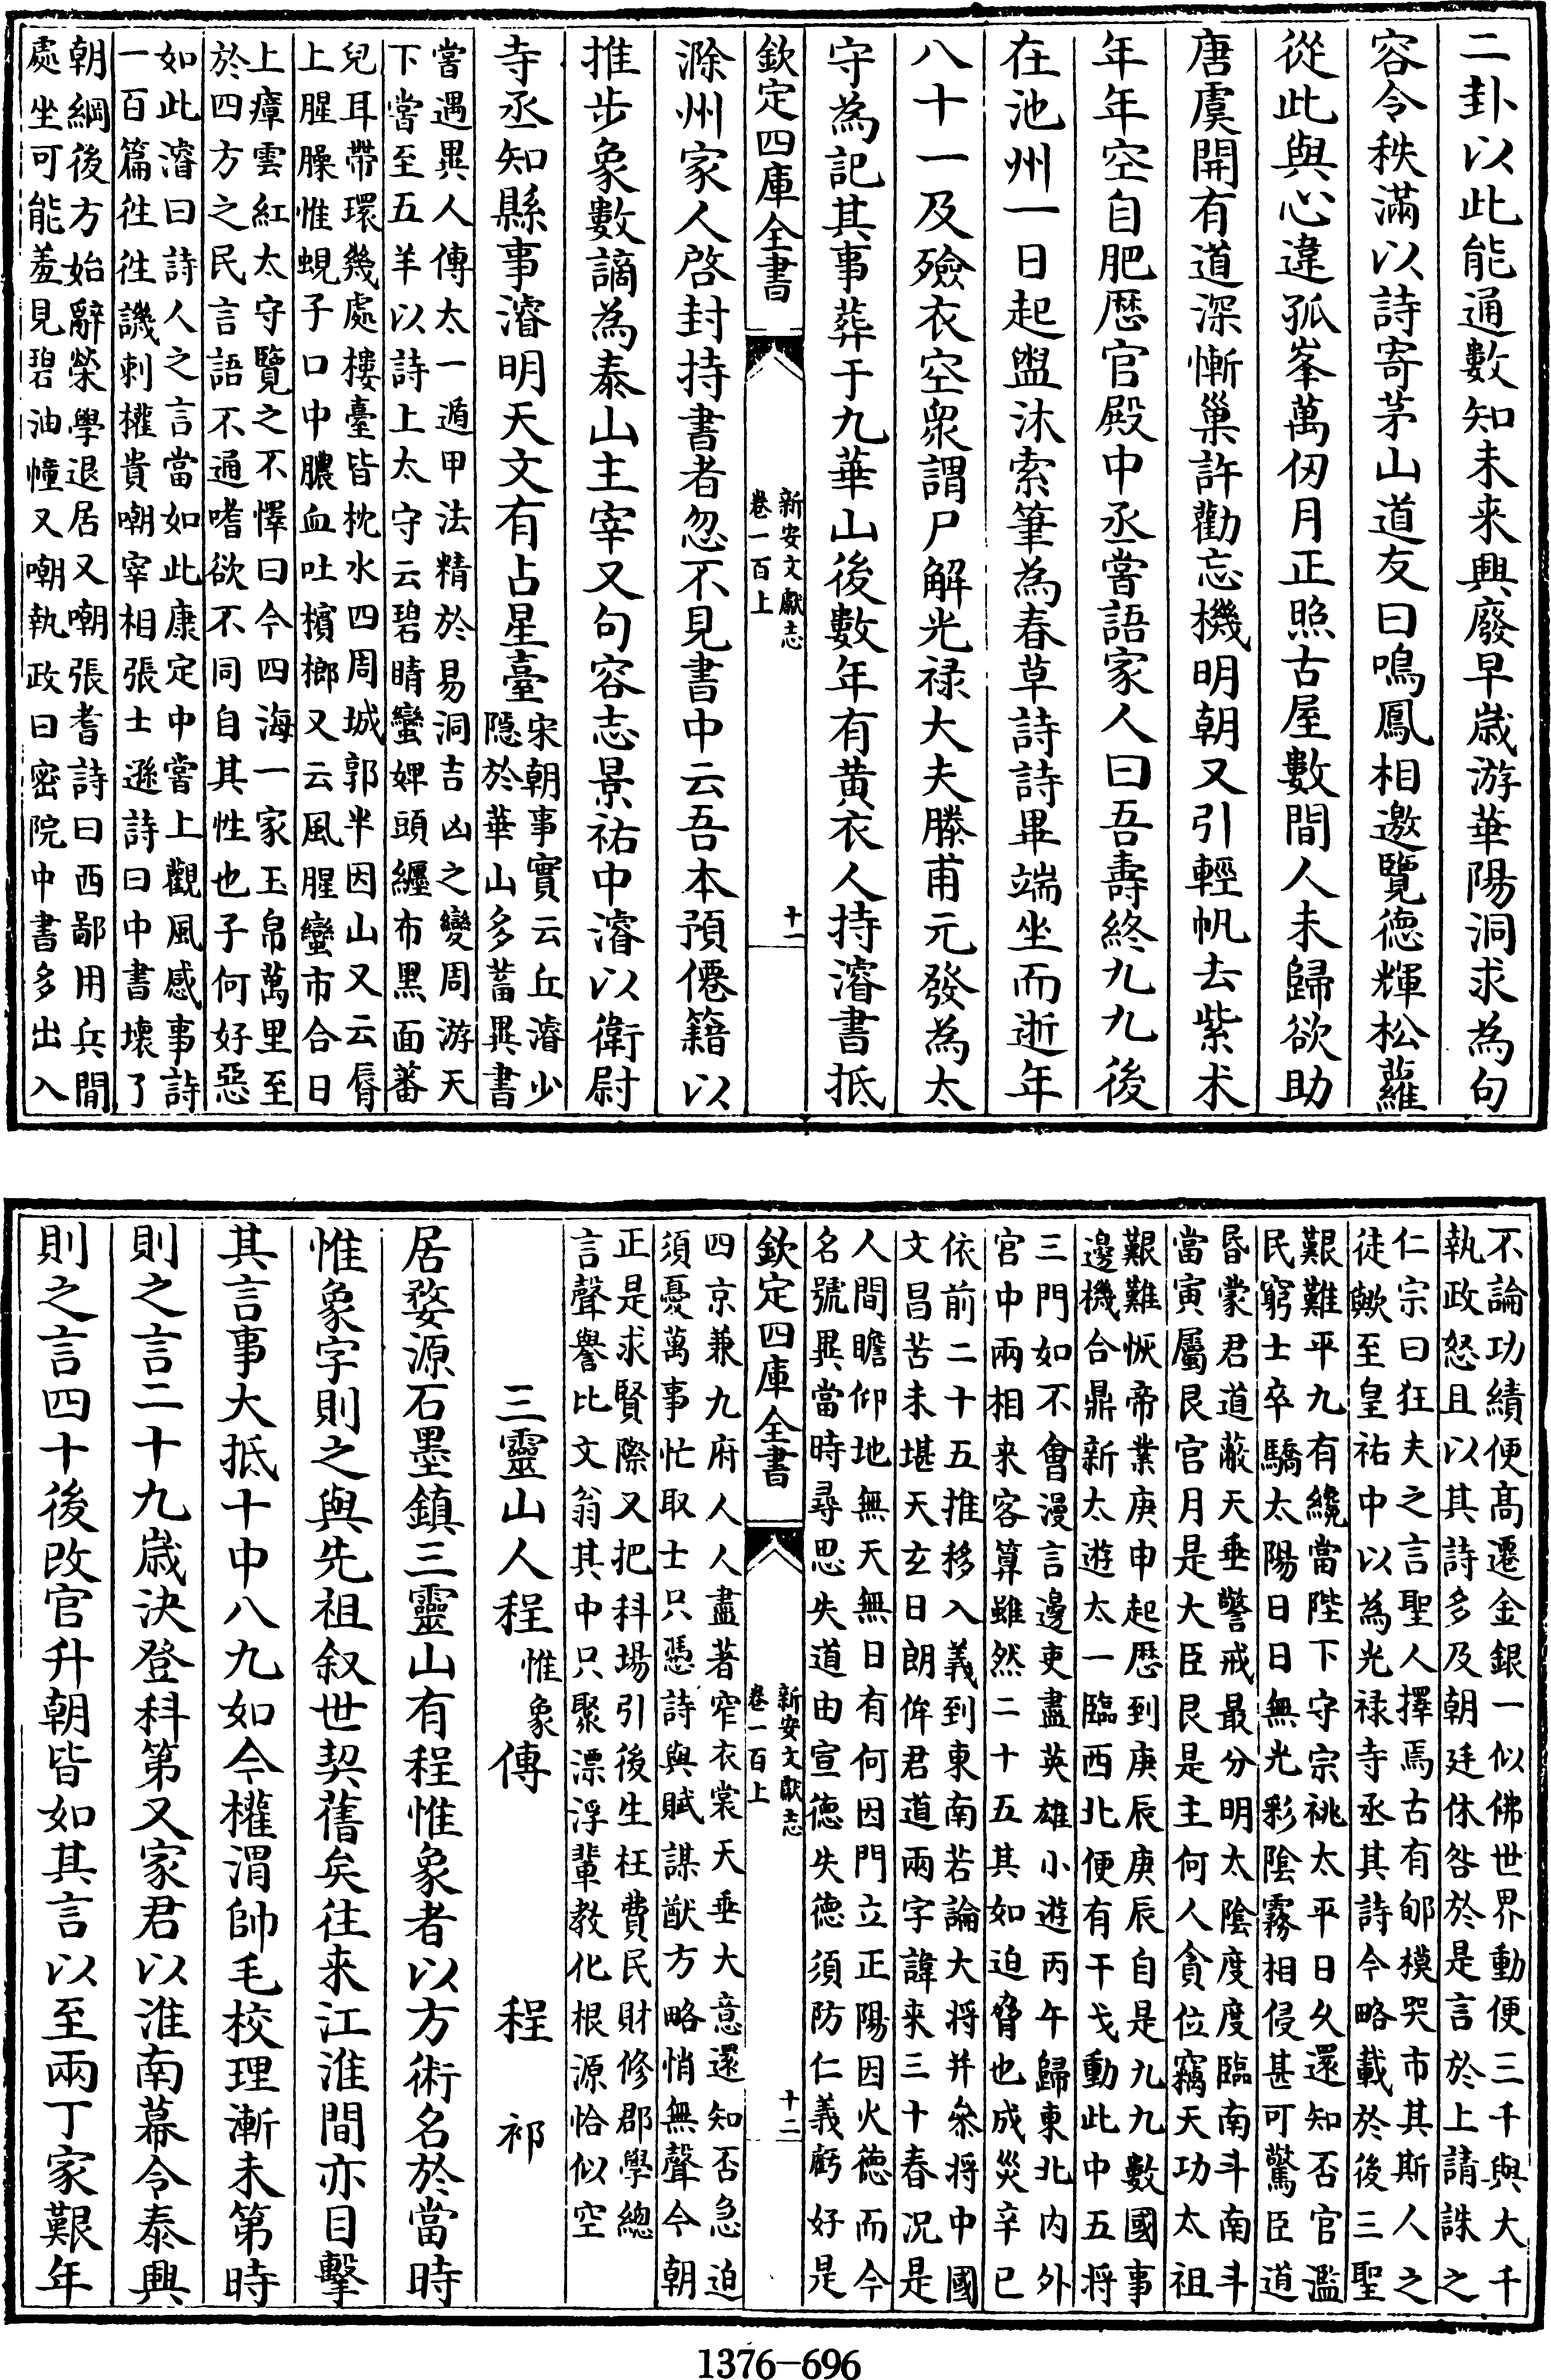 二卦以此能通數知未來興廢早歳游華陽洞求為句
容令秩滿以詩寄茅山道友曰鳴鳳相邀覽德輝松蘿
從此與心違孤峯萬仞月正照古屋數間人未歸欲助
唐虞開有道深慚巢許勸忘機明朝又引輕帆去紫术
年年空自肥歴官殿中丞嘗語家人曰吾壽終九九後
在池州一日起盥沐索筆為春草詩詩畢端坐而逝年
八十一及殮衣空衆謂尸解光禄大夫滕甫元發為太
守為記其事葬于九華山後數年有黄衣人持濬書抵
欽定四庫全書
新安文獻志
卷一百上
十一
滁州家人啓封持書者忽不見書中云吾本預僊籍以
推步象數謫為泰山主宰又句容志景祐中濬以衛尉
寺丞知縣事濬明天文有占星臺
宋朝事實云丘濬少
隱於華山多蓄異書
嘗遇異人傳太一遁甲法精於易洞吉凶之變周游天
下嘗至五羊以詩上太守云碧睛蠻婢頭纏布黑面蕃
兒耳帶環幾處樓臺皆枕水四周城郭半因山又云脣
上腥臊惟蜆子口中膿血吐檳榔又云風腥蠻市合日
上瘴雲紅太守覽之不懌曰今四海一家玉帛萬里至
於四方之民言語不通嗜欲不同自其性也子何好惡
如此濬曰詩人之言當如此康定中嘗上觀風感事詩
一百篇徃徃譏刺權貴嘲宰相張士遜詩曰中書壞了
朝綱後方始辭榮學退居又嘲張耆詩曰西鄙用兵間
處坐可能羞見碧油幢又嘲執政曰密院中書多出入
不論功績便高遷金銀一似佛世界動便三千與大千
執政怒且以其詩多及朝廷休咎於是言於上請誅之
仁宗曰狂夫之言聖人擇焉古有郇模哭市其斯人之
徒歟至皇祐中以為光禄寺丞其詩今略載於後三聖
艱難平九有纔當陛下守宗祧太平日久還知否官濫
民窮士卒驕太陽日日無光彩陰霧相侵甚可驚臣道
昏蒙君道蔽天垂警戒最分明太陰度度臨南斗南斗
當寅屬艮宫月是大臣艮是主何人貪位竊天功太祖
艱難恢帝業庚申起歴到庚辰庚辰自是九九數國事
邊機合鼎新太遊太一臨西北便有干戈動此中五將
三門如不會漫言邊吏盡英雄小遊丙午歸東北内外
宫中兩相來客算雖然二十五其如迫脅也成災辛巳
依前二十五推移入義到東南若論大将并叅将中國
文昌苦未堪天玄日朗侔君道兩字諱来三十春况是
人間瞻仰地無天無日有何因門立正陽因火德而今
名號異當時尋思失道由宣德失德須防仁義虧好是
欽定四庫全書
新安文獻志
卷一百上
十二
四京兼九府人人盡著窄衣裳天垂大意還知否急迫
須憂萬事忙取士只憑詩與賦謀猷方略悄無聲今朝
正是求賢際又把科場引後生枉費民財修郡學總
言聲譽比文翁其中只聚漂浮輩教化根源恰似空
三靈山人程惟象傳
程祁
居婺源石墨鎮三靈山有程惟象者以方術名於當時
惟象字則之與先祖叙世契舊矣徃来江淮間亦目擊
其言事大抵十中八九如今權渭帥毛校理漸未第時
則之言二十九歳決登科第又家君以淮南幕令泰興
則之言四十後改官升朝皆如其言以至兩丁家艱年
1376-696